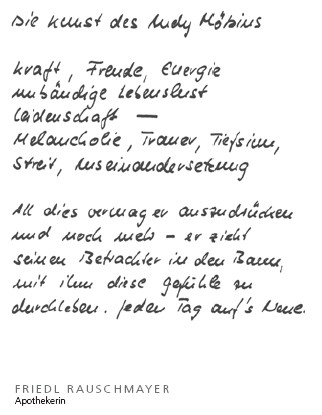 Die Kunst des Andy Möbius
Kraft, Freude, Energie
unbändige Lebenslust
Leidenschaft —
Melancholie, Trauer, Tiefsinn,
Streit, Auseinandersetzung
All dies vermag er auszudrücken
und noch mehr – er zieht
seinen Betrachter in den Bann,
mit ihm diese Gefühle zu
durchleben. Jeden Tag auf's Neue.
FRIEDL RAUSCHMAYER
Apothekerin